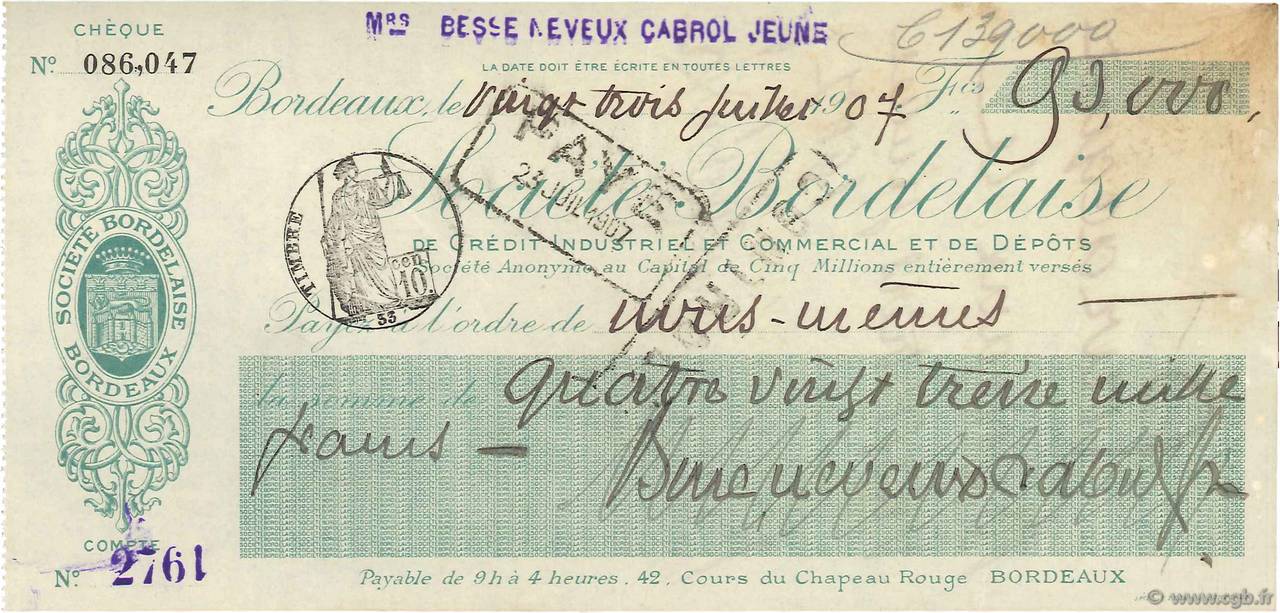 CHÈQUE
No. 086,047
MRS BESSE NEVEUX CABROL JEUNE
C139000
LA DATE DOIT ÊTRE ÉCRITE EN TOUTES LETTRES
Bordeaux, le vingt trois juillet 1907. Fcs 93,000,
PAYÉ
23 JUIL 1907
Société Bordelaise
DE CRÉDIT INDUSTRIEL ET COMMERCIAL ET DE DÉPÔTS
Société Anonyme au Capital de Cinq Millions entièrement versés
TIMBRE
10 cen.
33
SOCIÉTÉ BORDELAISE
BORDEAUX
Payez à l'ordre de nous-mêmes
la somme de quatre vingt treize mille
francs
Besse neveux Cabrol Je
COMPTE
No. 2761
Payable de 9h à 4 heures, 42, Cours du Chapeau Rouge BORDEAUX
© www.cgb.fr